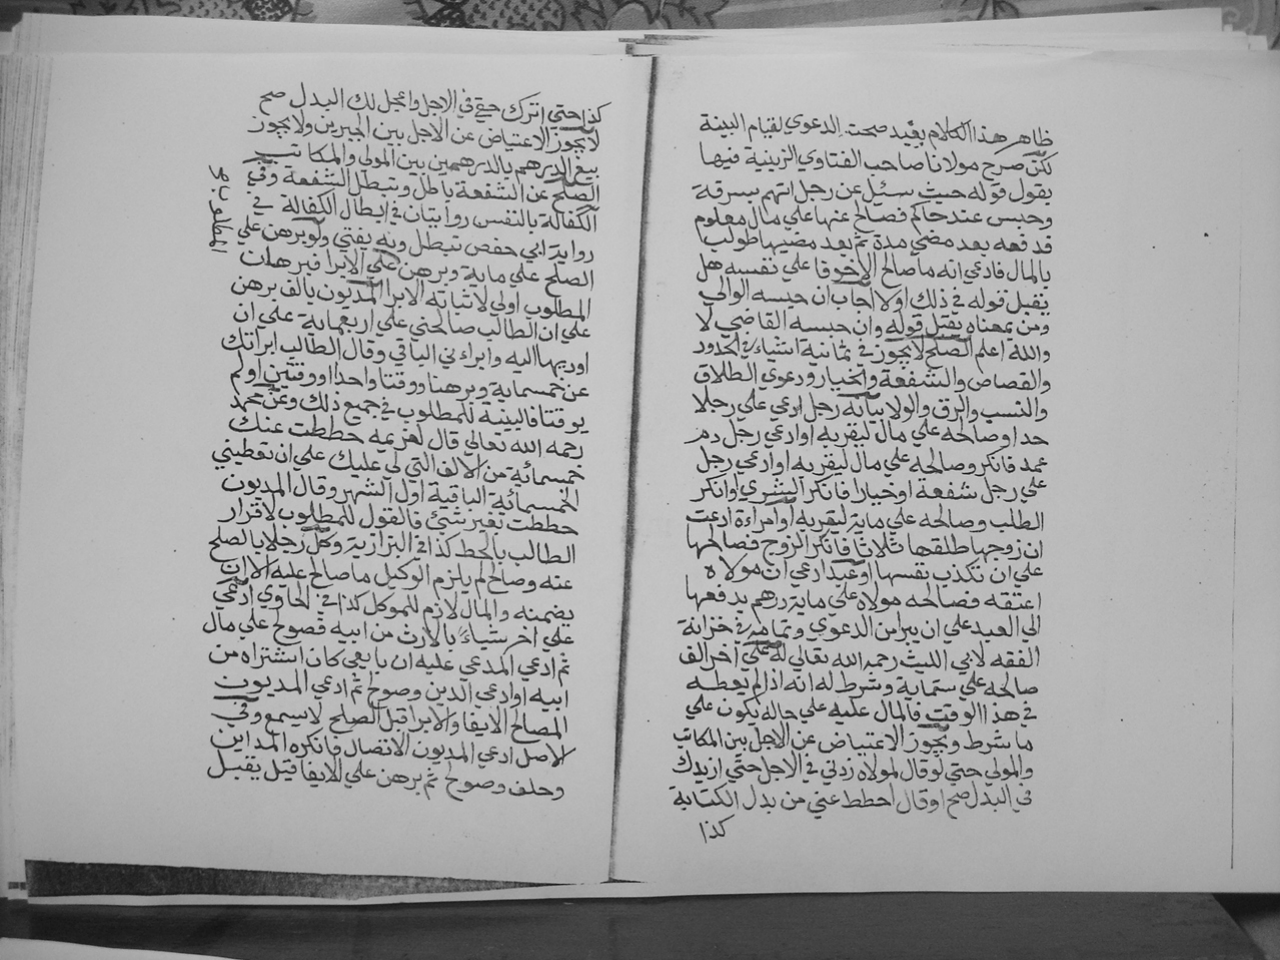 ظاهر هذا الكلام يفيد صحت الدعوي لقيام البينة
لكن صرح مولانا صاحب الفتاوي الزينية فيها
بقول قوله حيث سئل عن رجل اتهم بسرقة
وحبس عند حاكم فصالح عنها علي مال معلوم
قد فعه بعد مضي مدة ثم بعد مضيها طولب
بالمال فادعي انه ما صالح الا خوفا علي نفسه هل
تقبل قوله في ذلك او لا اجاب ان حبسه الوالي
ومن بمعناه يقبل قوله وان حبسه القاضي لا
والله اعلم الصلح لا يجوز في ثمانية اشياء في الحدود
والقصاص والشفعة والخيار ودعوي الطلاق
والنسب والرق والولا بيانه رجل ادعي علي رجلا
حدا وصالحه علي مال ليقر به او ادعي رجل دم
عمد فانكر وصالحه علي مال ليقر به او ادعي رجل
علي رجل شفعة او خيارا فانكر الشري او انكر
الطلب وصالحه علي ماية ليقر به او امراءة ادعت
ان زوجها طلقها ثلاثا فانكر الزوج فصالحها
علي ان تكذب نفسها او عبد ادعي ان مولاه
اعتقه فصالحه مولاه علي ماية درهم يدفعها
الي العبد علي ان يبرا من الدعوي وتمامه في خزانة
الفقه لابي الليث رحمه الله تعالي له علي اخر الف
صالحه علي ستماية وشرط له انه اذا لم يعطه
في هذا الوقت فالمال عليه علي حاله يكون علي
ما شرط ويجوز الاعتياض عن الاجل بين المكاتب
والمولي حتي لو قال لمولاه زدني في الاجل حتي ازيدك
في البدل صح او قال احطط عني من بدل الكتابة
كذا
كذا حتي اترك حقي في الاجل واعجل لك البدل صح
لا يجوز الاعتياض عن الاجل بين الحرين ولا يجوز
بيع الدرهم بالدرهمين بين المولي والمكاتب
الصلح عن الشفعة باطل وتبطل الشفعة وفي
الكفالة بالنفس روايتان في ابطال الكفالة في
رواية ابي حفص تبطل وبه يفتي ولو برهن علي
الصلح علي ماية وبرهن علي الابرا فبرهان
المطلوب اولي لاثباته الابرا المديون بالف برهن
علي ان الطالب صالحني علي اربعماية علي ان
اوديها اليه وابراءني الباقي وقال الطالب ابراتك
عن خمسماية وبرهنا ووقتا واحدا او وقتين او لم
يوقتا فالبينة للمطلوب في جميع ذلك وعن محمد
رحمه الله تعالي قال لغريمه حططت عنك
خمسمائة من الالف التي لي عليك علي ان تعطيني
الخمسمائة الباقية اول الشهر وقال المديون
حططت بغير شيئ فالقول للمطلوب لاقرار
الطالب بالحط كذا في البزازية وكل رجلا بالصلح
عنه وصالح لم يلزم الوكيل ما صالح عليه الا ان
يضمنه والمال لازم للموكل كذا في الحاوي ادعي
علي اخر شياء بالارث من ابيه فصولح علي مال
ثم ادعي المدعي عليه ان بايعي كان اشتراه من
ابيه او ادعي الدين وصولح ثم ادعي المديون
المصالح الايفا والابرا قبل الصلح لا يسمع وفي
الاصل ادعي المديون الاتصال فانكره المداين
وحلف وصولح ثم برهن علي الايفا قبل يقبل